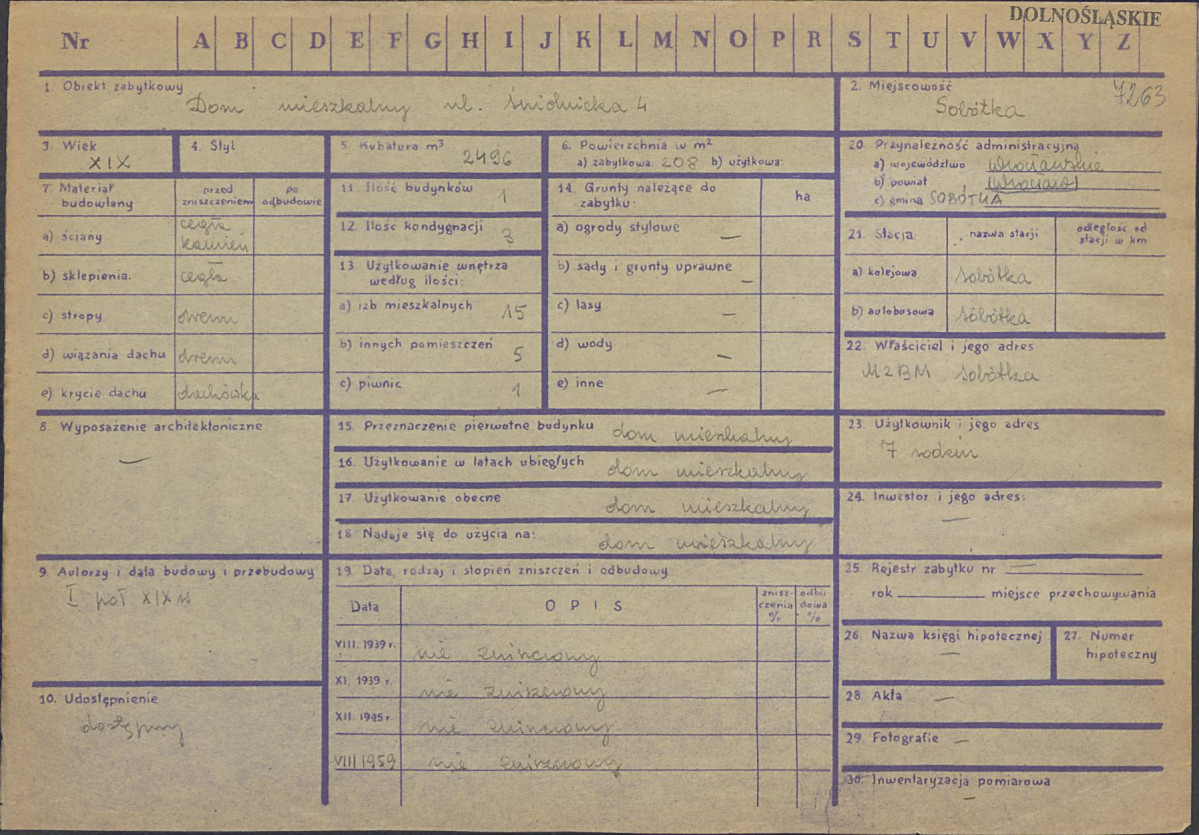 DOLNOŚLĄSKIE
Nr A B C D E F G H I J K L M N O P R S T U V W X Y Z
1. Obiekt zabytkowy
Dom mieszkalny ul. 4
2. Miejscowość 7263
Sobótka
3. Wiek
XIX
4. Styl
5. Kubatura m³
2496
6. Powierzchnia w m²
a) zabytkowa 208 b) użytkowa:
20. Przynależność administracyjna
a) województwo wrocławskie
b) powiat Wrocław
c) gmina SOBÓTKA
7. Materiał budowlany
przed zniszczeniem
po odbudowie
a) ściany cegła kamień
b) sklepienia. cegła
c) stropy drewn
d) wiązania dachu drewn
e) krycie dachu dachówka
11. Ilość budynków 1
12. Ilość kondygnacji 3
13. Użytkowanie wnętrza według ilości:
a) izb mieszkalnych 15
b) innych pomieszczeń 5
c) piwnic 1
14. Grunty należące do zabytku:
ha
a) ogrody stylowe —
b) sady i grunty uprawne —
c) lasy —
d) wody —
e) inne —
21. Stacja
nazwa stacji
odległość od stacji w km
a) kolejowa Sobótka
b) autobusowa Sobótka
22. Właściciel i jego adres
MZBM Sobótka
8. Wyposażenie architektoniczne
—
15. Przeznaczenie pierwotne budynku dom mieszkalny
16. Użytkowanie w latach ubiegłych dom mieszkalny
17. Użytkowanie obecne dom mieszkalny
18. Nadaje się do użycia na: dom mieszkalny
23. Użytkownik i jego adres
7 rodzin
24. Inwestor i jego adres:
—
9. Autorzy i data budowy i przebudowy
I poł XIX w
10. Udostępnienie
dostępny
19. Data, rodzaj i stopień zniszczeń i odbudowy
Data
OPIS
zniszczenia %
odbudowa %
VIII. 1939 r. nie zniszczony
XI. 1939 r. nie zniszczony
XII. 1945 r. nie zniszczony
VIII 1959 nie zniszczony
25. Rejestr zabytku nr —
rok miejsce przechowywania
26. Nazwa księgi hipotecznej
—
27. Numer hipoteczny
28. Akta —
29. Fotografie —
30. Inwentaryzacja pomiarowa
—